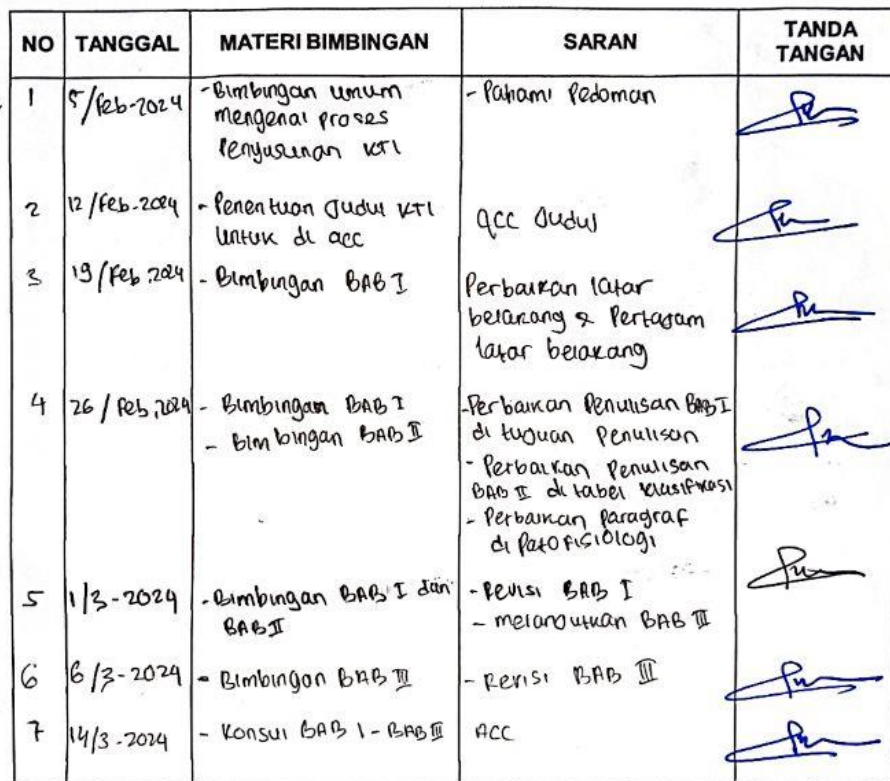 NO TANGGAL MATERI BIMBINGAN SARAN TANDA TANGAN
1 5/Feb-2024 - Bimbingan umum - Pahami Pedoman
mengenai proses
Penyusunan KTI
2 12/Feb-2024 - Penentuan Judul KTI acc Judul
untuk di acc
3 19/Feb, 2024 - Bimbingan BAB I Perbaikan latar
belakang & Pertajam
latar belakang
4 26/Feb, 2024 - Bimbingan BAB I - Perbaikan Penulisan BAB I
- Bimbingan BAB II di tujuan Penulisan
- Perbaikan Penulisan
BAB II di tabel klasifikasi
- Perbaikan Paragraf
di Patofisiologi
5 1/3-2024 - Bimbingan BAB I dan - Revisi BAB I
BAB II - melanjutkan BAB III
6 6/3-2024 - Bimbingan BAB III - Revisi BAB III
7 14/3-2024 - Konsul BAB I - BAB III ACC